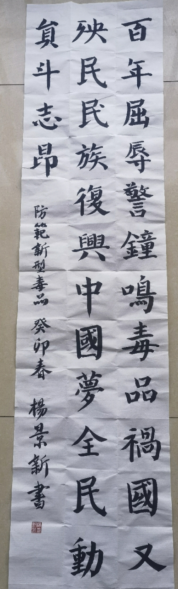 百年屈辱警鐘鳴毒品禍國又
殃民民族復興中國夢全民動
員斗志昂
防範新型毒品 癸卯春 楊景新書